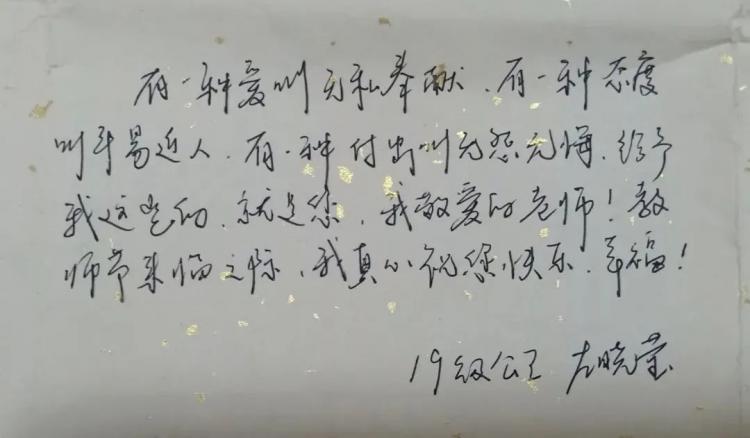 有一种爱叫无私奉献、有一种态度
叫平易近人、有一种付出叫无怨无悔、给予
我这些的、就是您、我敬爱的老师！教
师节来临之际、我真心祝您快乐、幸福！
19级公卫 左晓莹